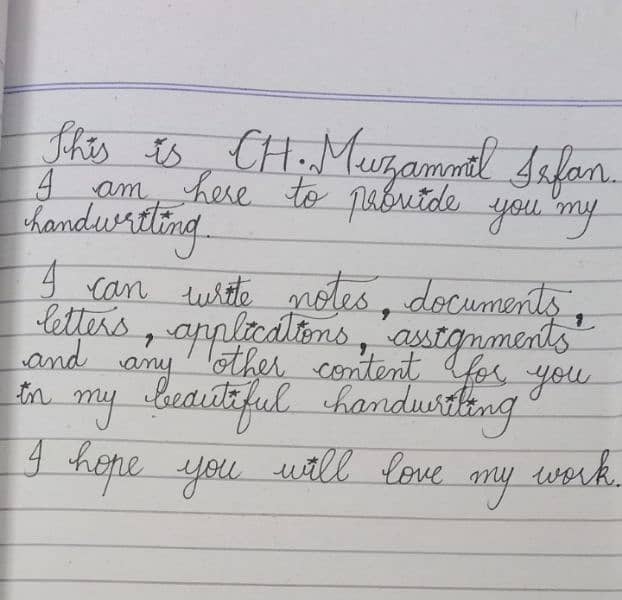 This is CH. Muzammil Irfan.
I am here to provide you my
handwriting.
I can write notes, documents,
letters, applications, assignments
and any other content for you
in my beautiful handwriting
I hope you will love my work.